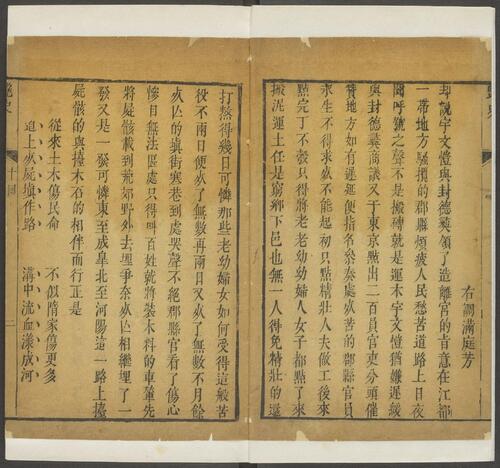 右調滿庭芳
却說宇文愷與封德彞領了造離宮的旨意在江都
一帶地方騷擾的郡縣煩疲人民愁苦道路上日夜
聞呼號之聲不是搬磚就是運木宇文愷猶嫌遲緩
與封德彞商議又于東京點出二百員官吏分頭催
督地方如有遲延便指名叅奏處死苦的郡縣官員
求生不得求死不能起初只點精壯人夫做工後來
點完了不彀只得將老老幼幼婦人女子都點了來
搬泥運土任是窮鄉下邑也無一人得免精壯的還
打熬得幾日可憐那些老幼婦女如何受得這般苦
役不兩日便死了無數再兩日又死了無數不月餘
死亾的填街塞巷到處哭聲不絕郡縣官看了傷心
慘目無法區處只得叫百姓就將裝木料的車輦先
將屍骸載到荒郊野外去埋爭奈死亾相繼埋了一
發又是一發可憐東至成皋北至河陽這一路上擡
屍骸的與擡木石的相伴而行正是
從來土木傷民命 不似隋家傷更多
道上死屍填作路 溝中流血漾成河
艷史 十回 二